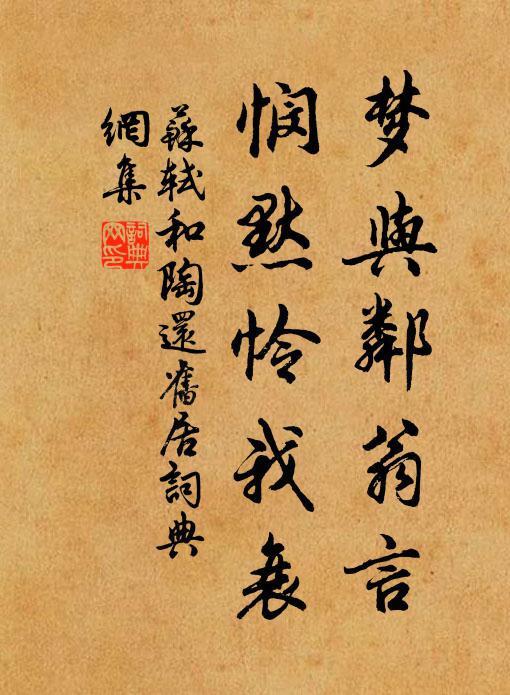 梦與鄰翁言
悯默怜我衰
蘇軾和陶還舊居詞典
網集
詞典
网印